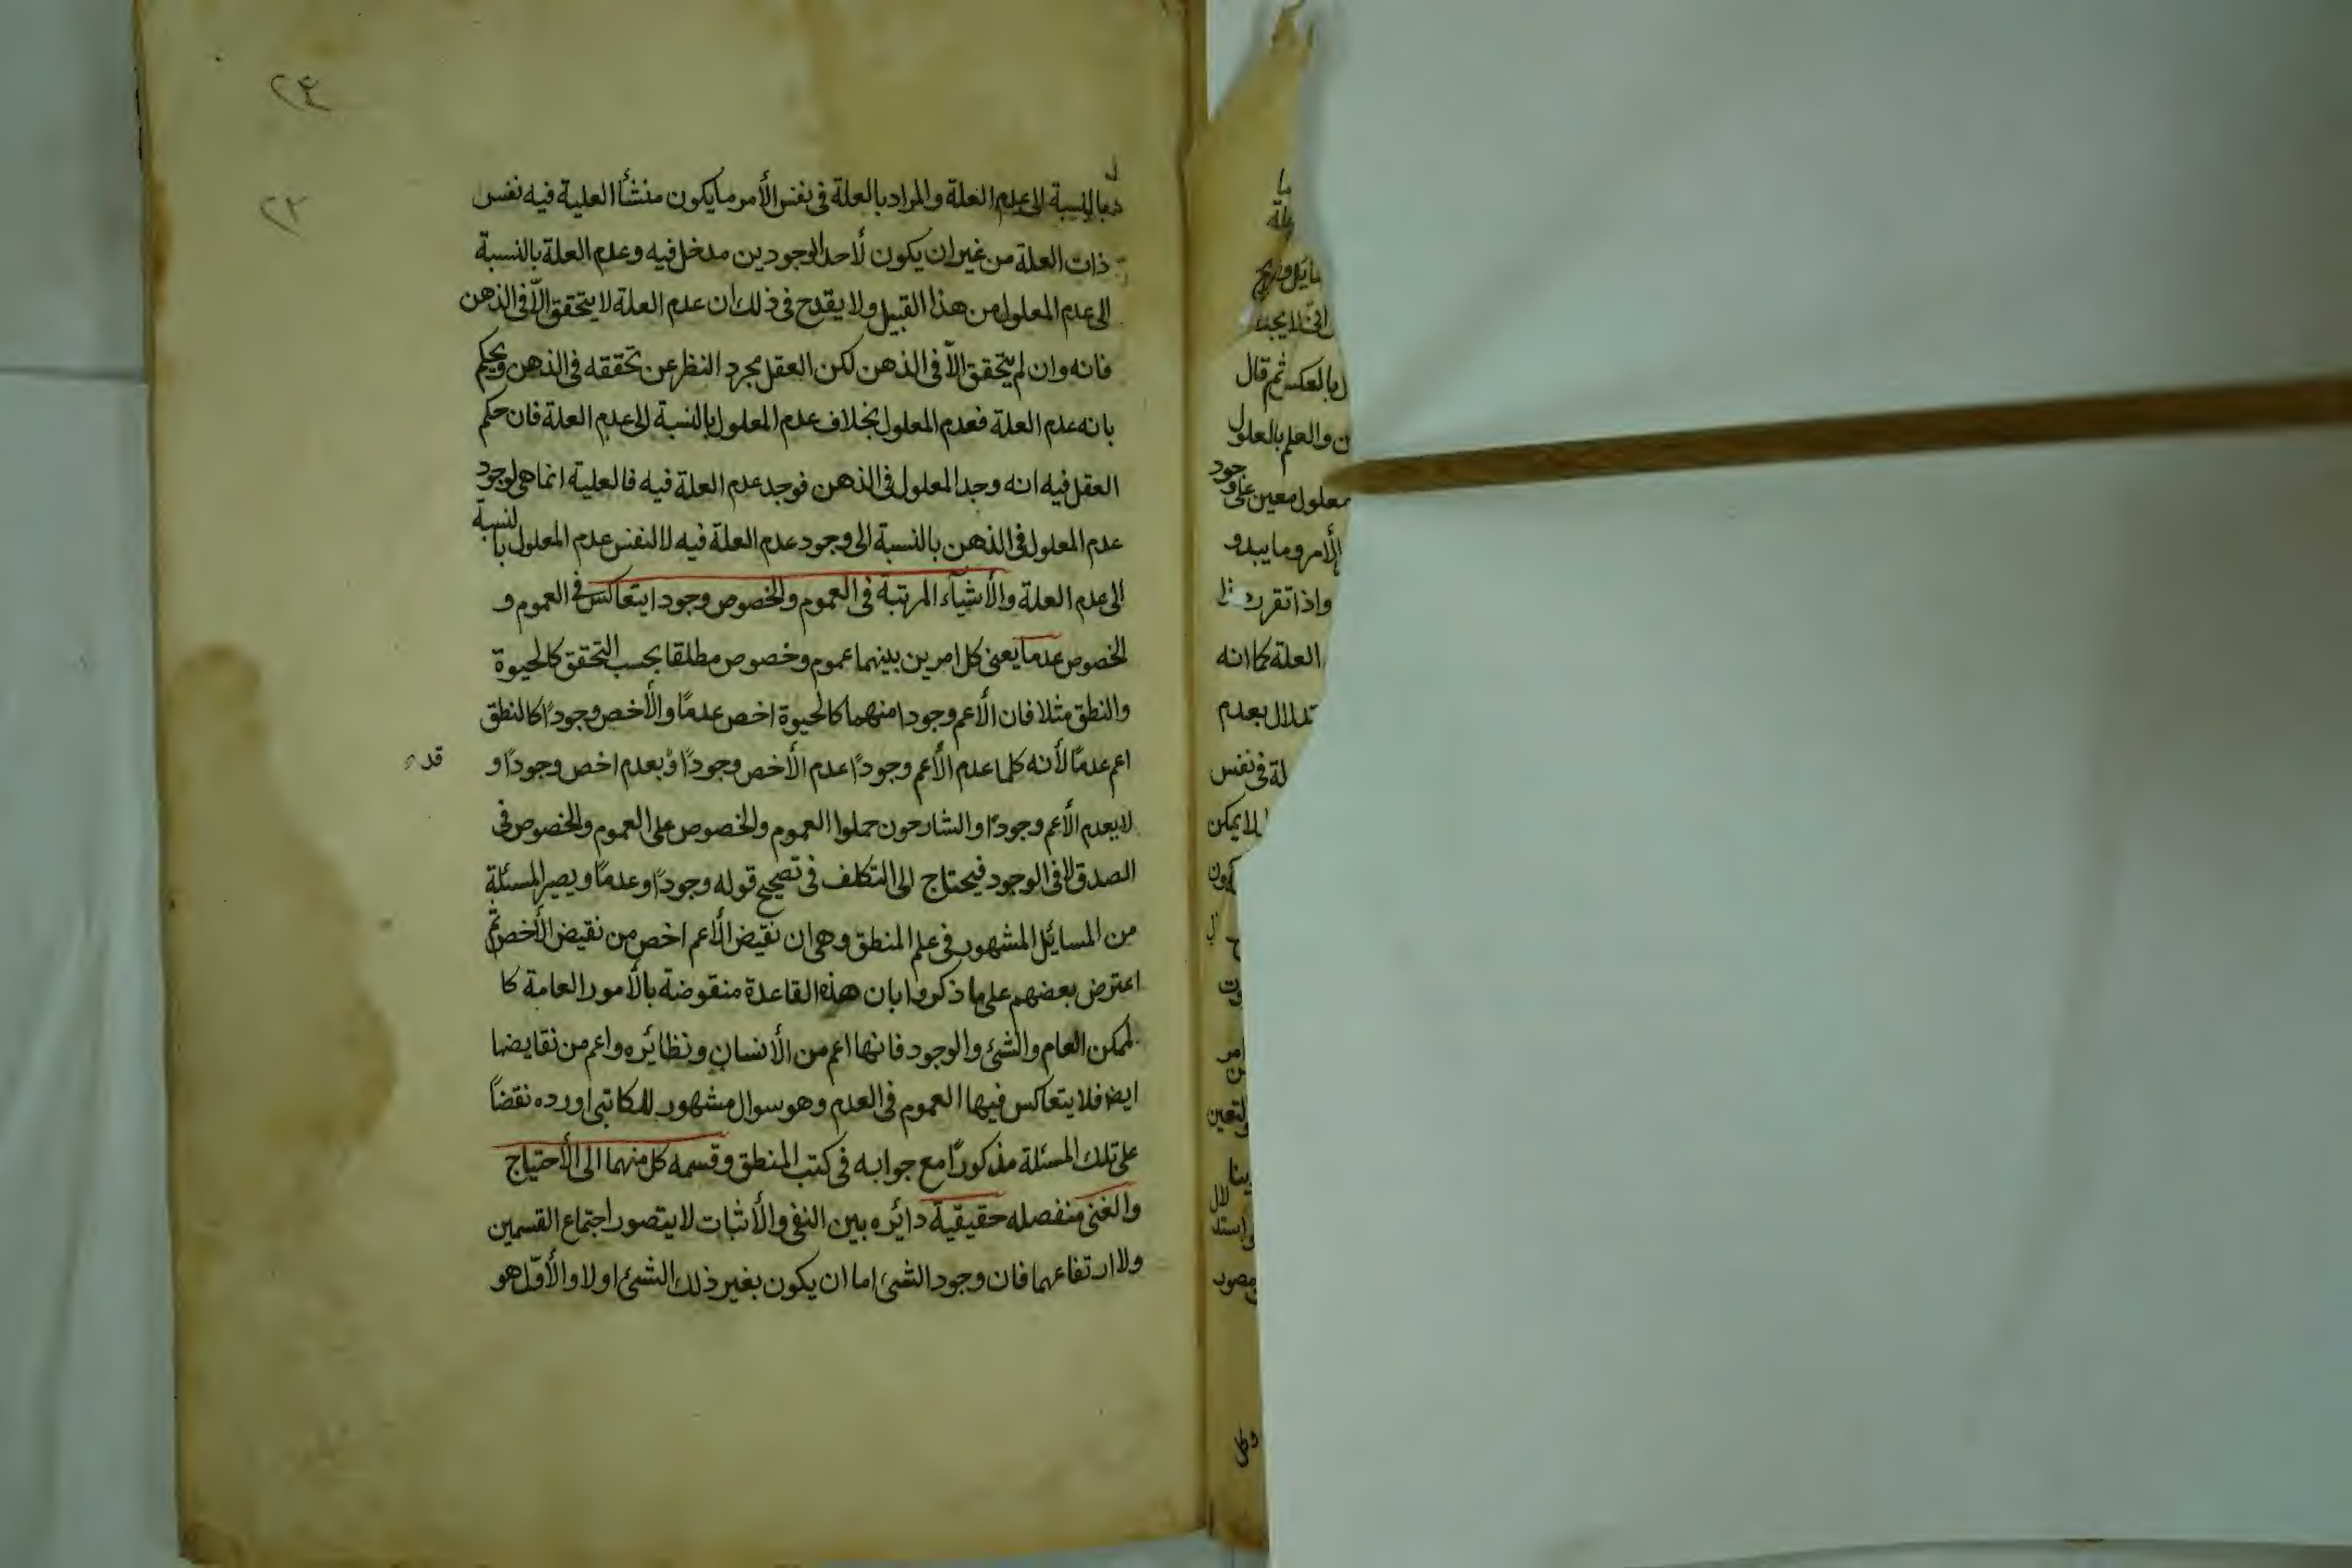 ٢٤
٢٣
بالنسبة الى عدم العلة والمراد بالعلة فى نفس الأمر ما يكون منشأ العلية فيه نفس
ذات العلة من غير ان يكون لأحد الوجودين مدخل فيه وعدم العلة بالنسبة
الى عدم المعلول من هذا القبيل ولا يقدح فى ذلك ان عدم العلة لا يتحقق الّا فى الذهن
فانه وان لم يتحقق الّا فى الذهن لكن العقل يجرد النظر عن تحققه فى الذهن ويحكم
بانه عدم العلة فعدم المعلول بخلاف عدم المعلول بالنسبة الى عدم العلة فان حكم
العقل فيه انه وجد المعلول فى الذهن فوجد عدم العلة فيه فالعلية انما هى لوجود
عدم المعلول فى الذهن بالنسبة الى وجود عدم العلة فيه لا لنفس عدم المعلول بالنسبة
الى عدم العلة والأشيآء المرتبة فى العموم والخصوص وجودا يتعاكس فى العموم و
الخصوص عدما يعنى كل امرين بينهما عموم وخصوص مطلقا بحسب التحقق كالحيوة
والنطق مثلا فان الأعم وجودا منهما كالحيوة اخص عدمًا والأخص وجودًا كالنطق
اعم عدمًا لأنه كلما عدم الأعم وجودًا عدم الأخص وجودًا وبعدم اخص وجودًا و
قد
لا يعدم الأعم وجودًا والشارحون حملوا العموم والخصوص على العموم والخصوص فى
الصدق لا فى الوجود فيحتاج الى التكلف فى تصحيح قوله وجودًا وعدمًا ويصير المسئلة
من المسائل المشهور فى علم المنطق وهى ان نقيض الأعم اخص من نقيض الأخص ثم
اعترض بعضهم على ما ذكروا بان هذه القاعدة منقوضة بالأمور العامة كا
لممكن العام والشئ والوجود فانها اعم من الأنسان ونظائره واعم من نقايضها
ايضا فلا يتعاكس فيها العموم فى العدم وهو سوال مشهور للكاتبى اورده نقضًا
على تلك المسئلة مذكورًا مع جوابه فى كتب المنطق وقسمه كل منهما الى الأحتياج
والغنى منفصله حقيقية دائره بين النفى والأثبات لا يتصور اجتماع القسمين
ولا ارتفاعهما فان وجود الشئ اما ان يكون بغير ذلك الشئ او لا والأوّل هو
بالعكس ثم قال
والعلم بالعلول
معلول معين على وجود
الأمر وما يبدو
واذا تقرر
العلة كما انه
بعدم
فى نفس
لا يمكن
وكل